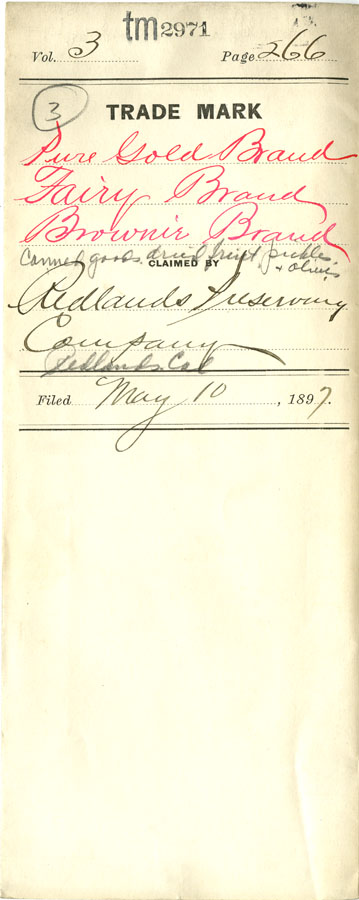 tm 2971
Vol. 3 Page 266
3
TRADE MARK
Pure Gold Brand
Fairy Brand
Brownie Brand
Canned goods, dried fruit, pickles,
+ olives
CLAIMED BY
Redlands Preserving
Company
Redlands Cal
Filed May 10, 1897.